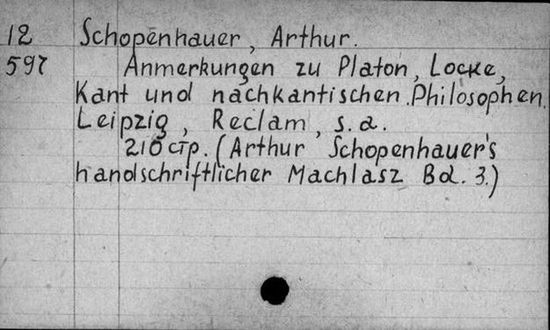 12 Schopenhauer, Arthur.
597 Anmerkungen zu Platon, Locke,
Kant und nachkantischen Philosophen.
Leipzig, Reclam, s.a.
210 стр. (Arthur Schopenhauer's
handschriftlicher Machlasz Bd. 3.)